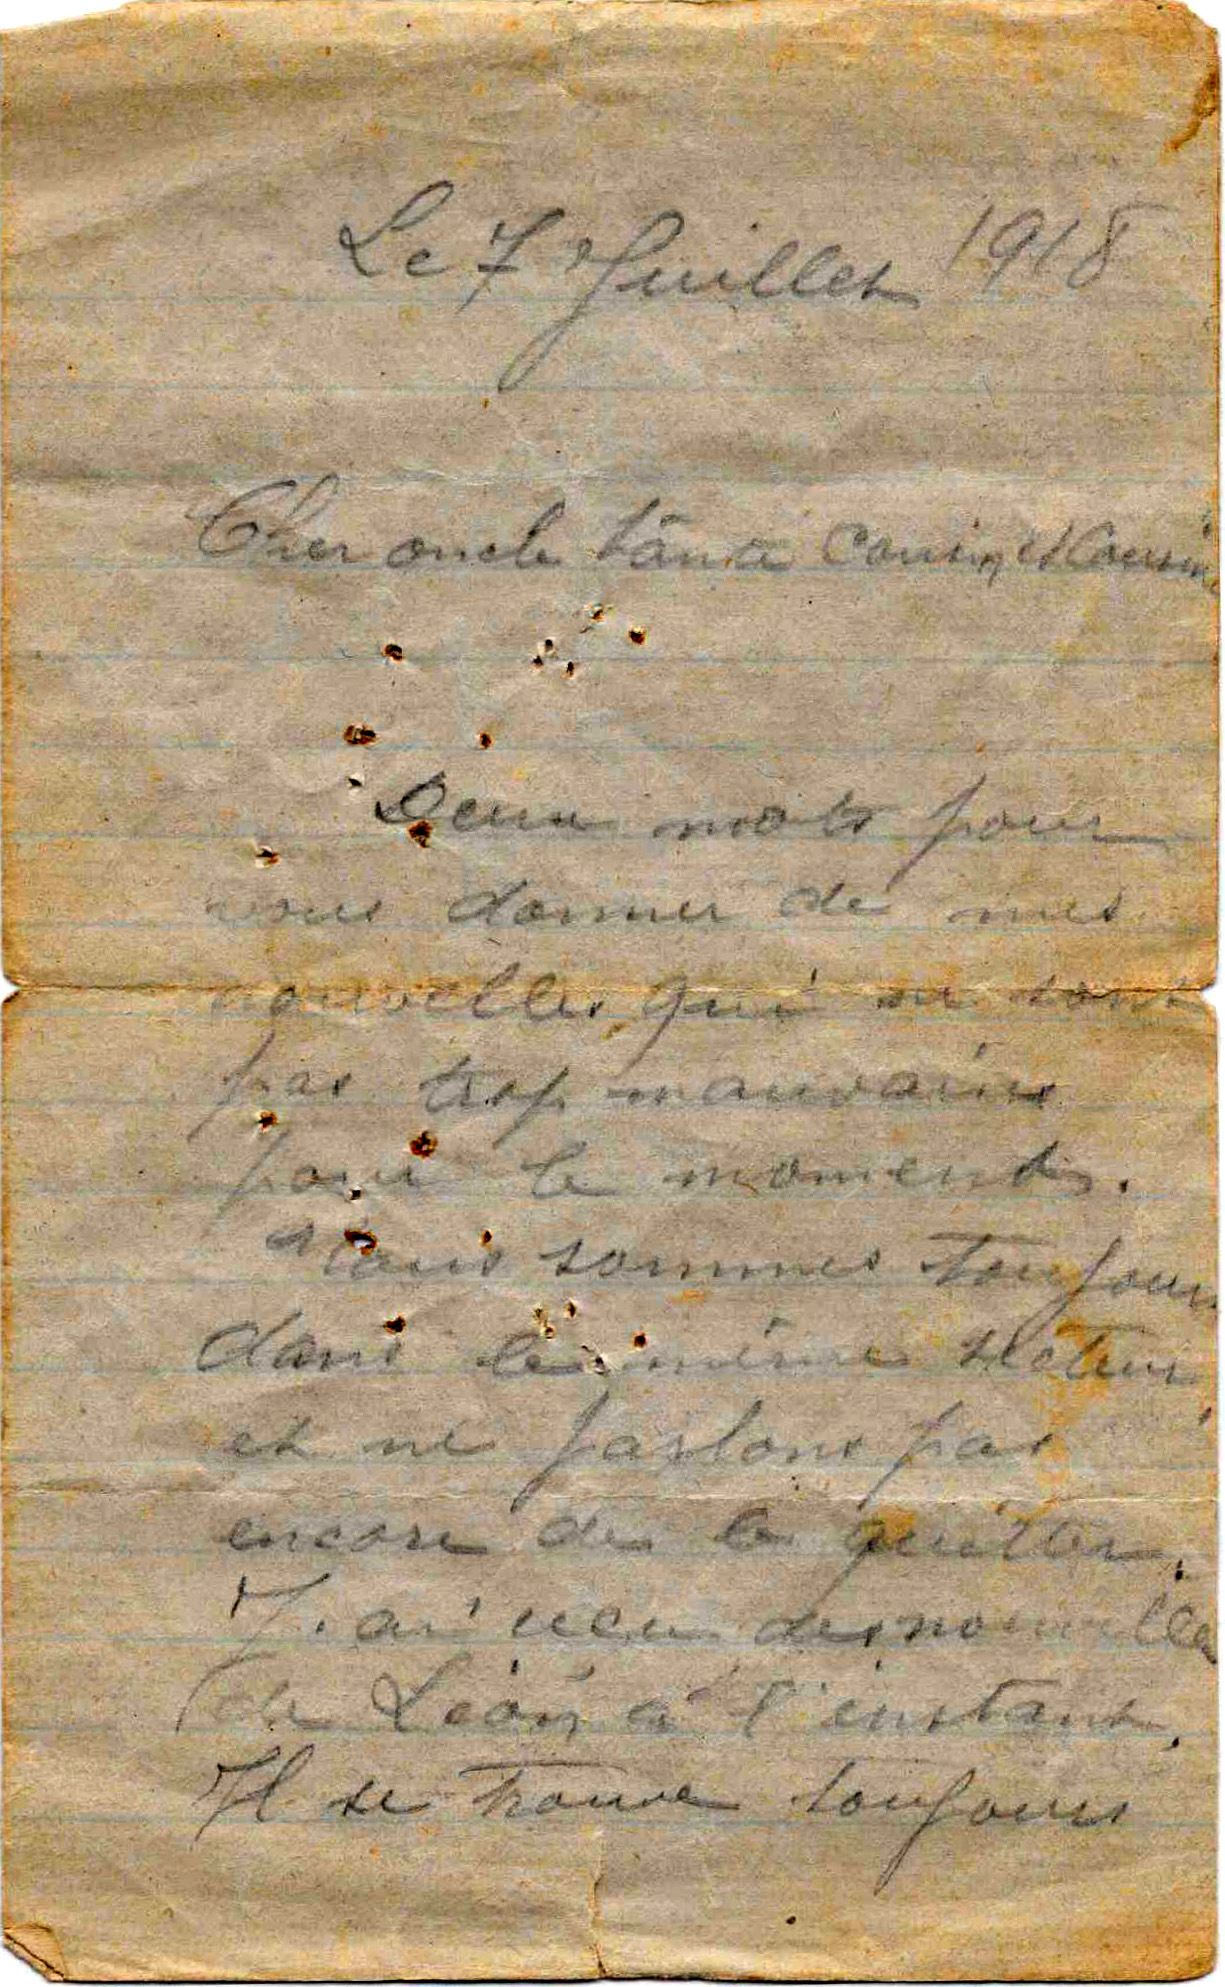 Le 7 Juillet 1918
Cher oncle tante Cousin et Cousine
Deux mots pour
vous donner de mes
nouvelles qui ne sont
pas trop mauvaises
pour le moments.
Nous sommes toujours
dans le même secteur
et ne parlons pas
encore de le quitter.
J'ai reçu des nouvelles
de Léon à l'instant.
Il se trouve toujours